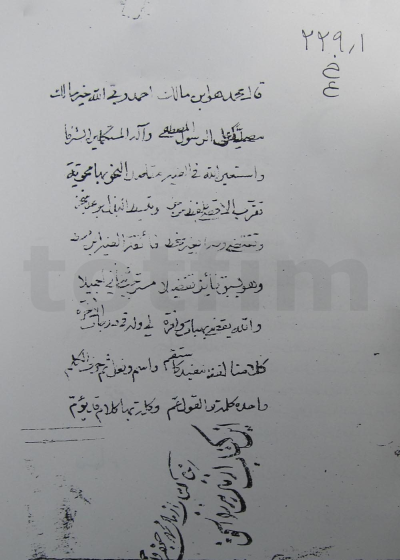 ٢٢٩٫١
خ
ع
قال محمد هو ابن مالك احمد ربي الله خير مالك
مصليا على الرسول المصطفى وآله المستكملين الشرفا
واستعين الله في الفية مقاصد النحو بها محوية
تقرب الاقصى بلفظ موجز وتبسط البذل بوعد منجز
وتقتضي رضا بغير سخط فائقة الفية ابن معط
وهو بسبق حائز تفضيلا مستوجب ثنائي الجميلا
والله يقضي بهبات وافرة لي وله في درجات الآخرة
كلامنا لفظ مفيد كاستقم واسم وفعل ثم حرف الكلم
واحده كلمة والقول عم وكلمة بها كلام قد يؤم